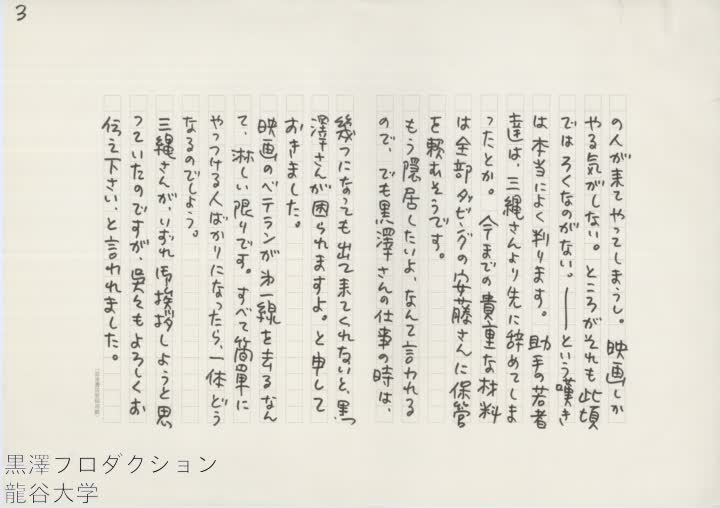 3
の人が来てやってしまうし。映画しか
やる気がしない。ところがそれも此頃
ではろくなのがない。――という嘆き
は本当によく判ります。助手の若者
達は、三縄さんより先に辞めてしま
ったとか。今までの貴重な材料
は全部ダビングの安藤さんに保管
を頼むそうです。
もう隠居したいよ、なんて言われる
ので、でも黒澤さんの仕事の時は、
幾つになっても出て来てくれないと、黒
澤さんが困られますよ。と申して
おきました。
映画のベテランが第一線を去るなん
て、淋しい限りです。すべて簡単に
やっつける人ばかりになったら、一体どう
なるのでしょう。
三縄さんが、いずれ御挨拶しようと思
っていたのですが、呉々もよろしくお
伝え下さい、と言われました。
黒澤プロダクション
龍谷大学